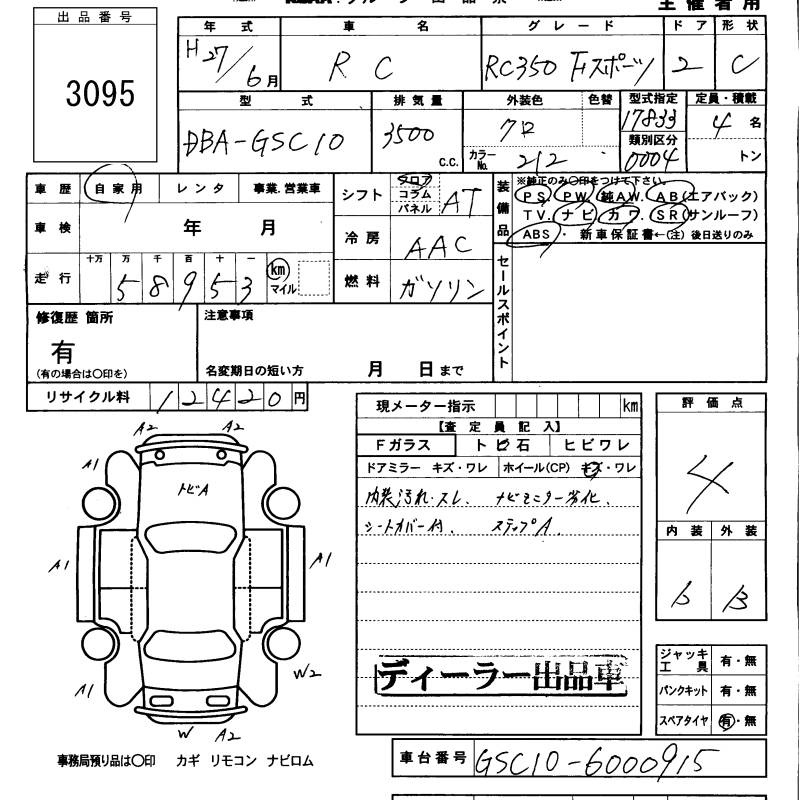 主催者用
出品番号
3095
年式 車名 グレード ドア 形状
H27/6月 RC RC350 Fスポーツ 2 C
型式 排気量 外装色 色替 型式指定 定員・積載
DBA-GSC10 3500 c.c. クロ 17833 4名
カラーNo. 212 類別区分 0004 トン
車歴 自家用 レンタ 事業.営業車
シフト フロア コラム パネル AT
装備品 ※純正のみ〇印をつけて下さい。
PS. PW. 純AW. AB(エアバッグ)
TV. ナビ. カワ. SR(サンルーフ)
ABS・新車保証書←(注)後日送りのみ
車検 年 月
冷房 AAC
走行 十万 万 千 百 十 一
58953 km マイル
燃料 ガソリン
セールスポイント
修復歴 箇所
有
(有の場合は〇印を)
注意事項
名変期日の短い方 月 日まで
リサイクル料 12420円
現メーター指示 km
【査定員記入】
Fガラス トビ石 ヒビワレ
ドアミラー キズ・ワレ ホイール(CP) キズ・ワレ
内装汚れ.スレ. ナビモニター劣化.
シートカバー付. ステップA.
ディーラー出品車
評価点
4
内装 外装
B B
A2 A2
A1 トビA
A1 A1
A1 W2
W A2
ジャッキ工具 有・無
パンクキット 有・無
スペアタイヤ 有・無
事務局預り品は〇印 カギ リモコン ナビロム
車台番号 GSC10-6000915